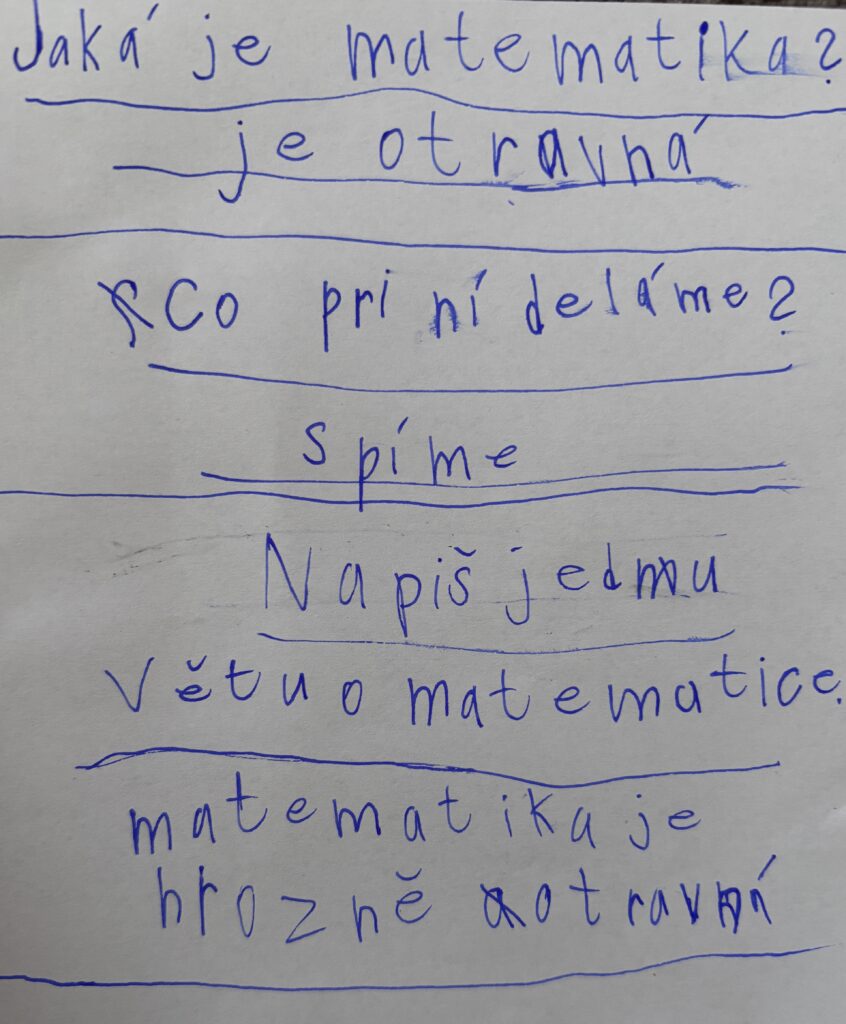 Jaká je matematika?
je otravná
Co pri ní deláme?
spíme
Napiš jednu
větu o matematice.
matematika je
hrozně otravní